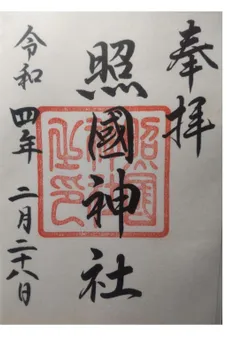 奉拝
照國神社
令和四年 二月二十八日